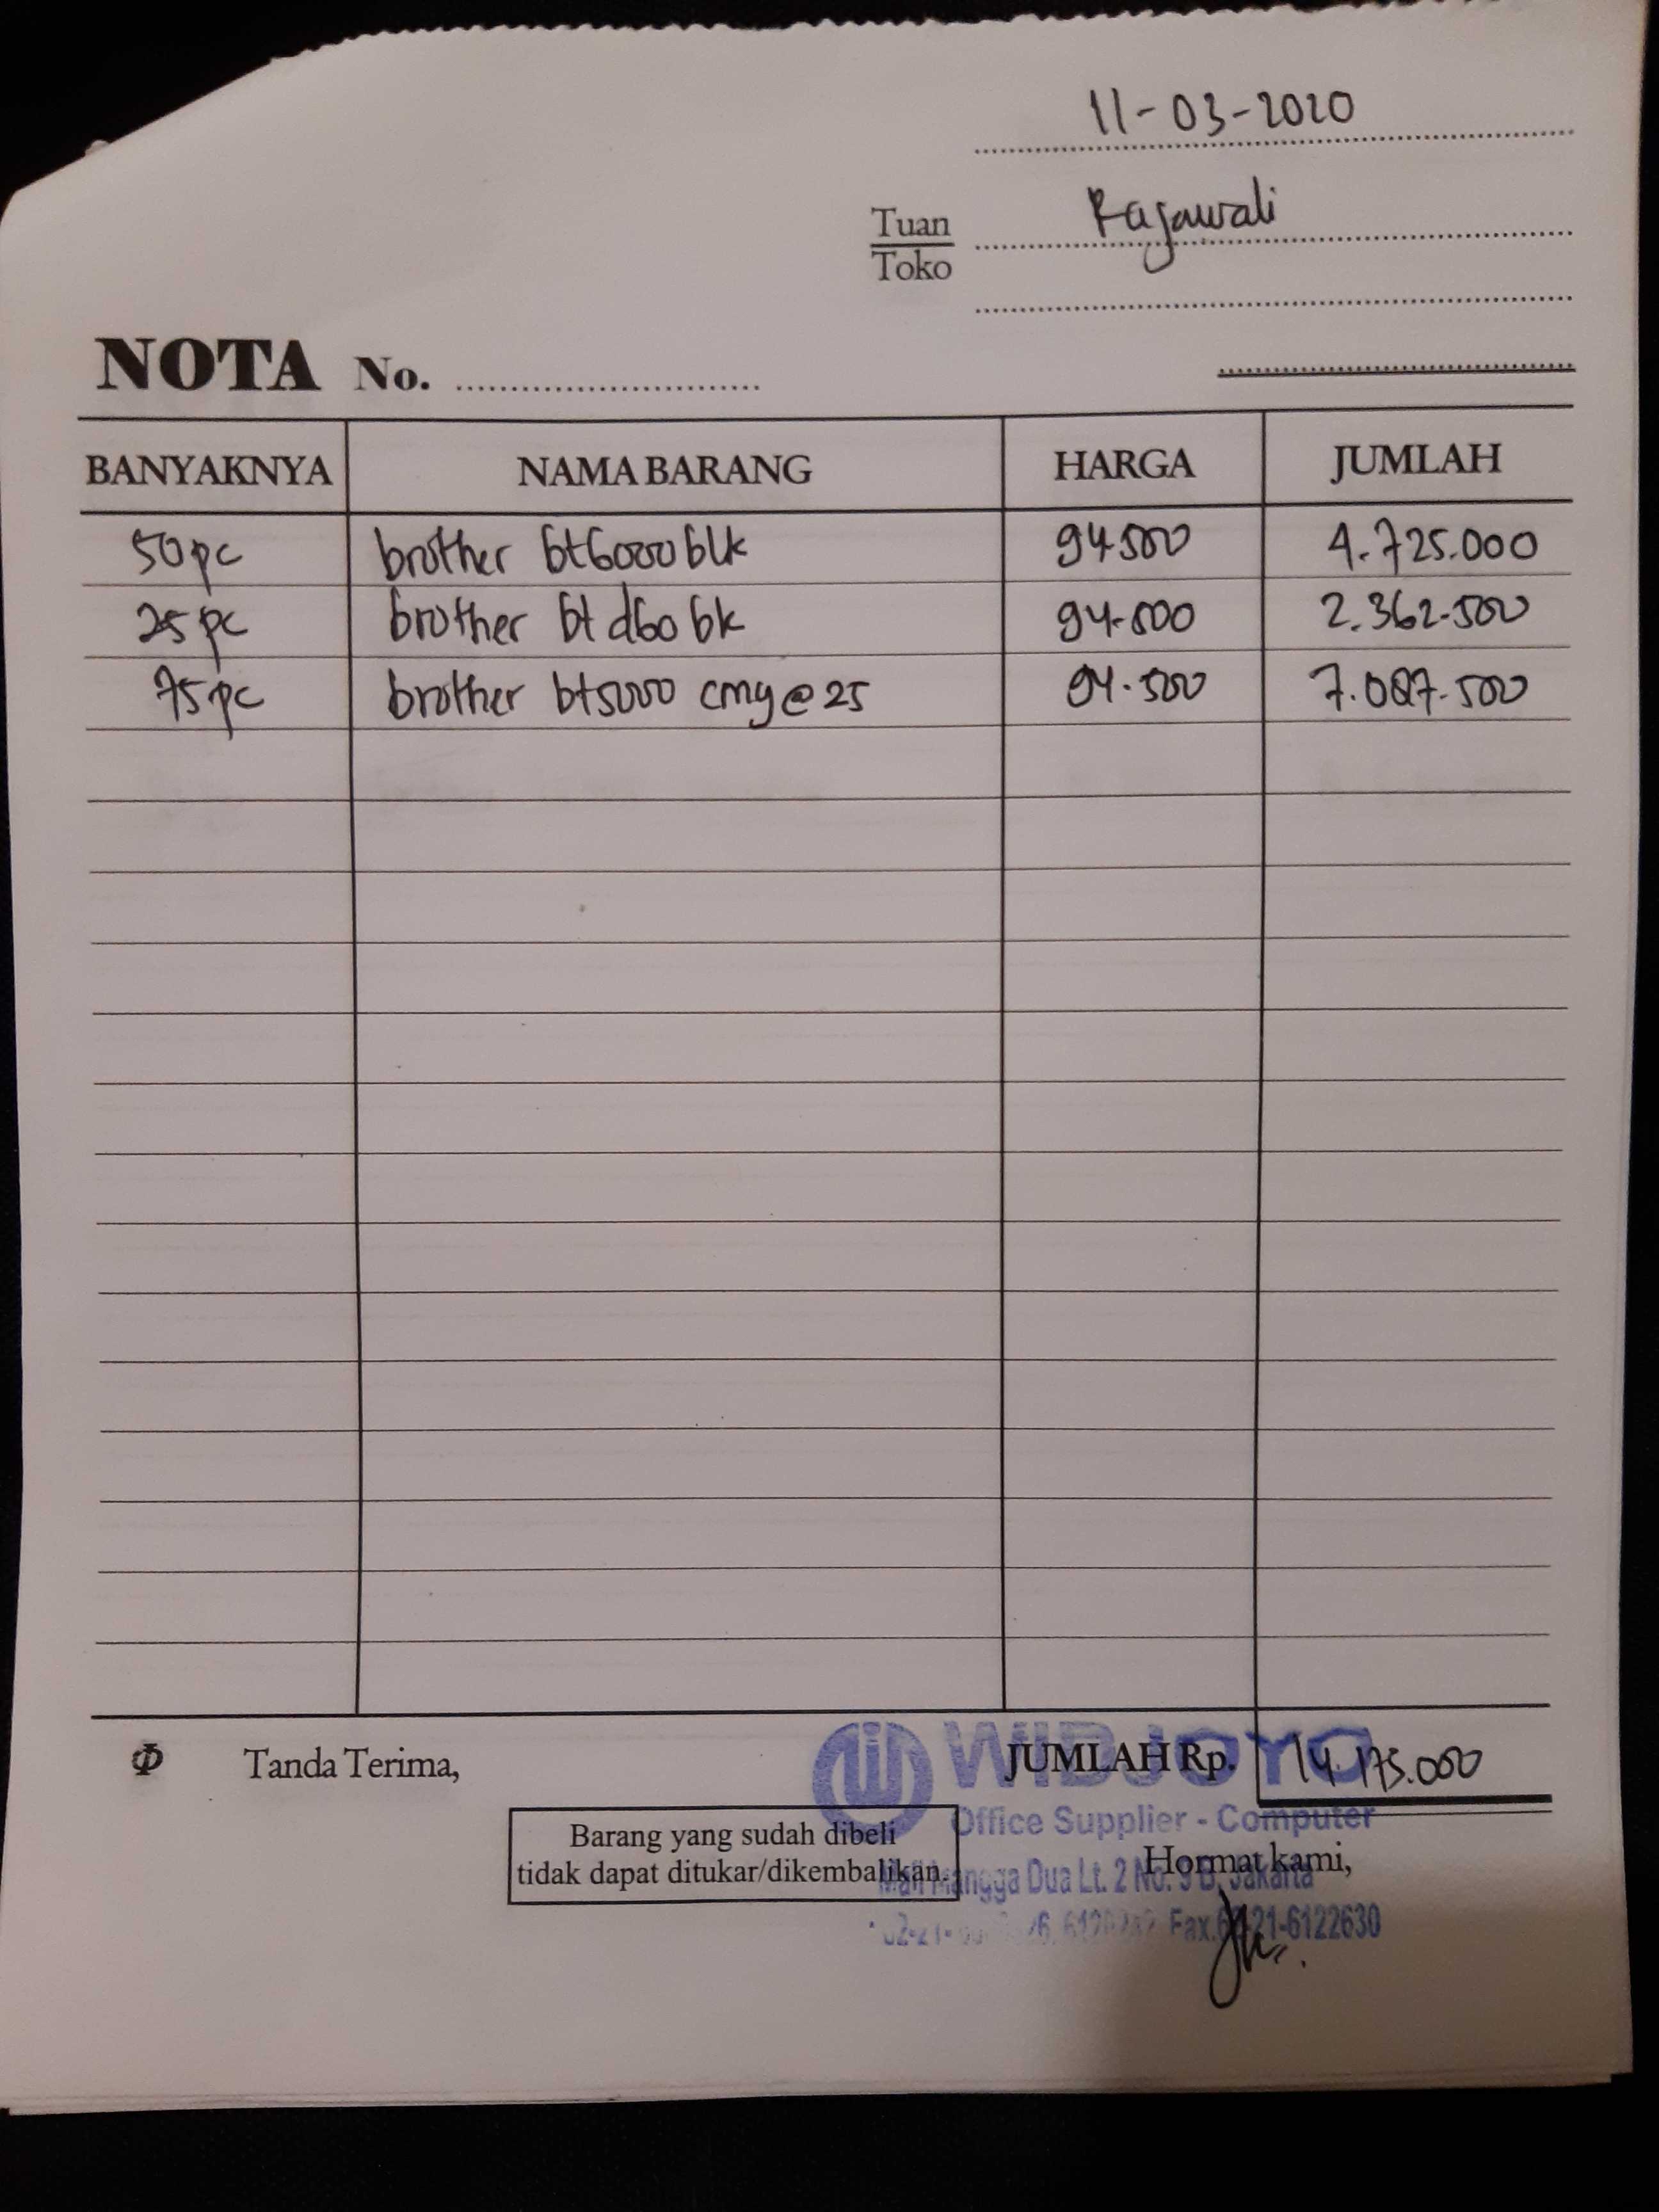 11-03-2020
Tuan
Toko
Rajawali
NOTA No.
BANYAKNYA NAMA BARANG HARGA JUMLAH
50 pc brother bt6000 blk 94500 4.725.000
25 pc brother bt d60 bk 94.500 2.362.500
75 pc brother bt5000 cmy @ 25 94.500 7.087.500
Tanda Terima,
JUMLAH Rp. 14.175.000
WIDJOYO
Office Supplier - Computer
Barang yang sudah dibeli
tidak dapat ditukar/dikembalikan.
Hormat kami,
Mall Mangga Dua Lt. 2 No. 9 B, Jakarta
Fax. 21-6122630